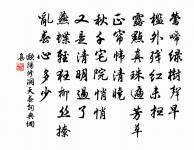 鶯啼綠樹聲早
檻外殘紅未掃
露點真珠遍芳草
正簾幃清曉
秋千宅院悄悄
又是清明過了
燕蝶輕狂柳絲撩
亂春心多少
歐陽修洞天春詞典網
集